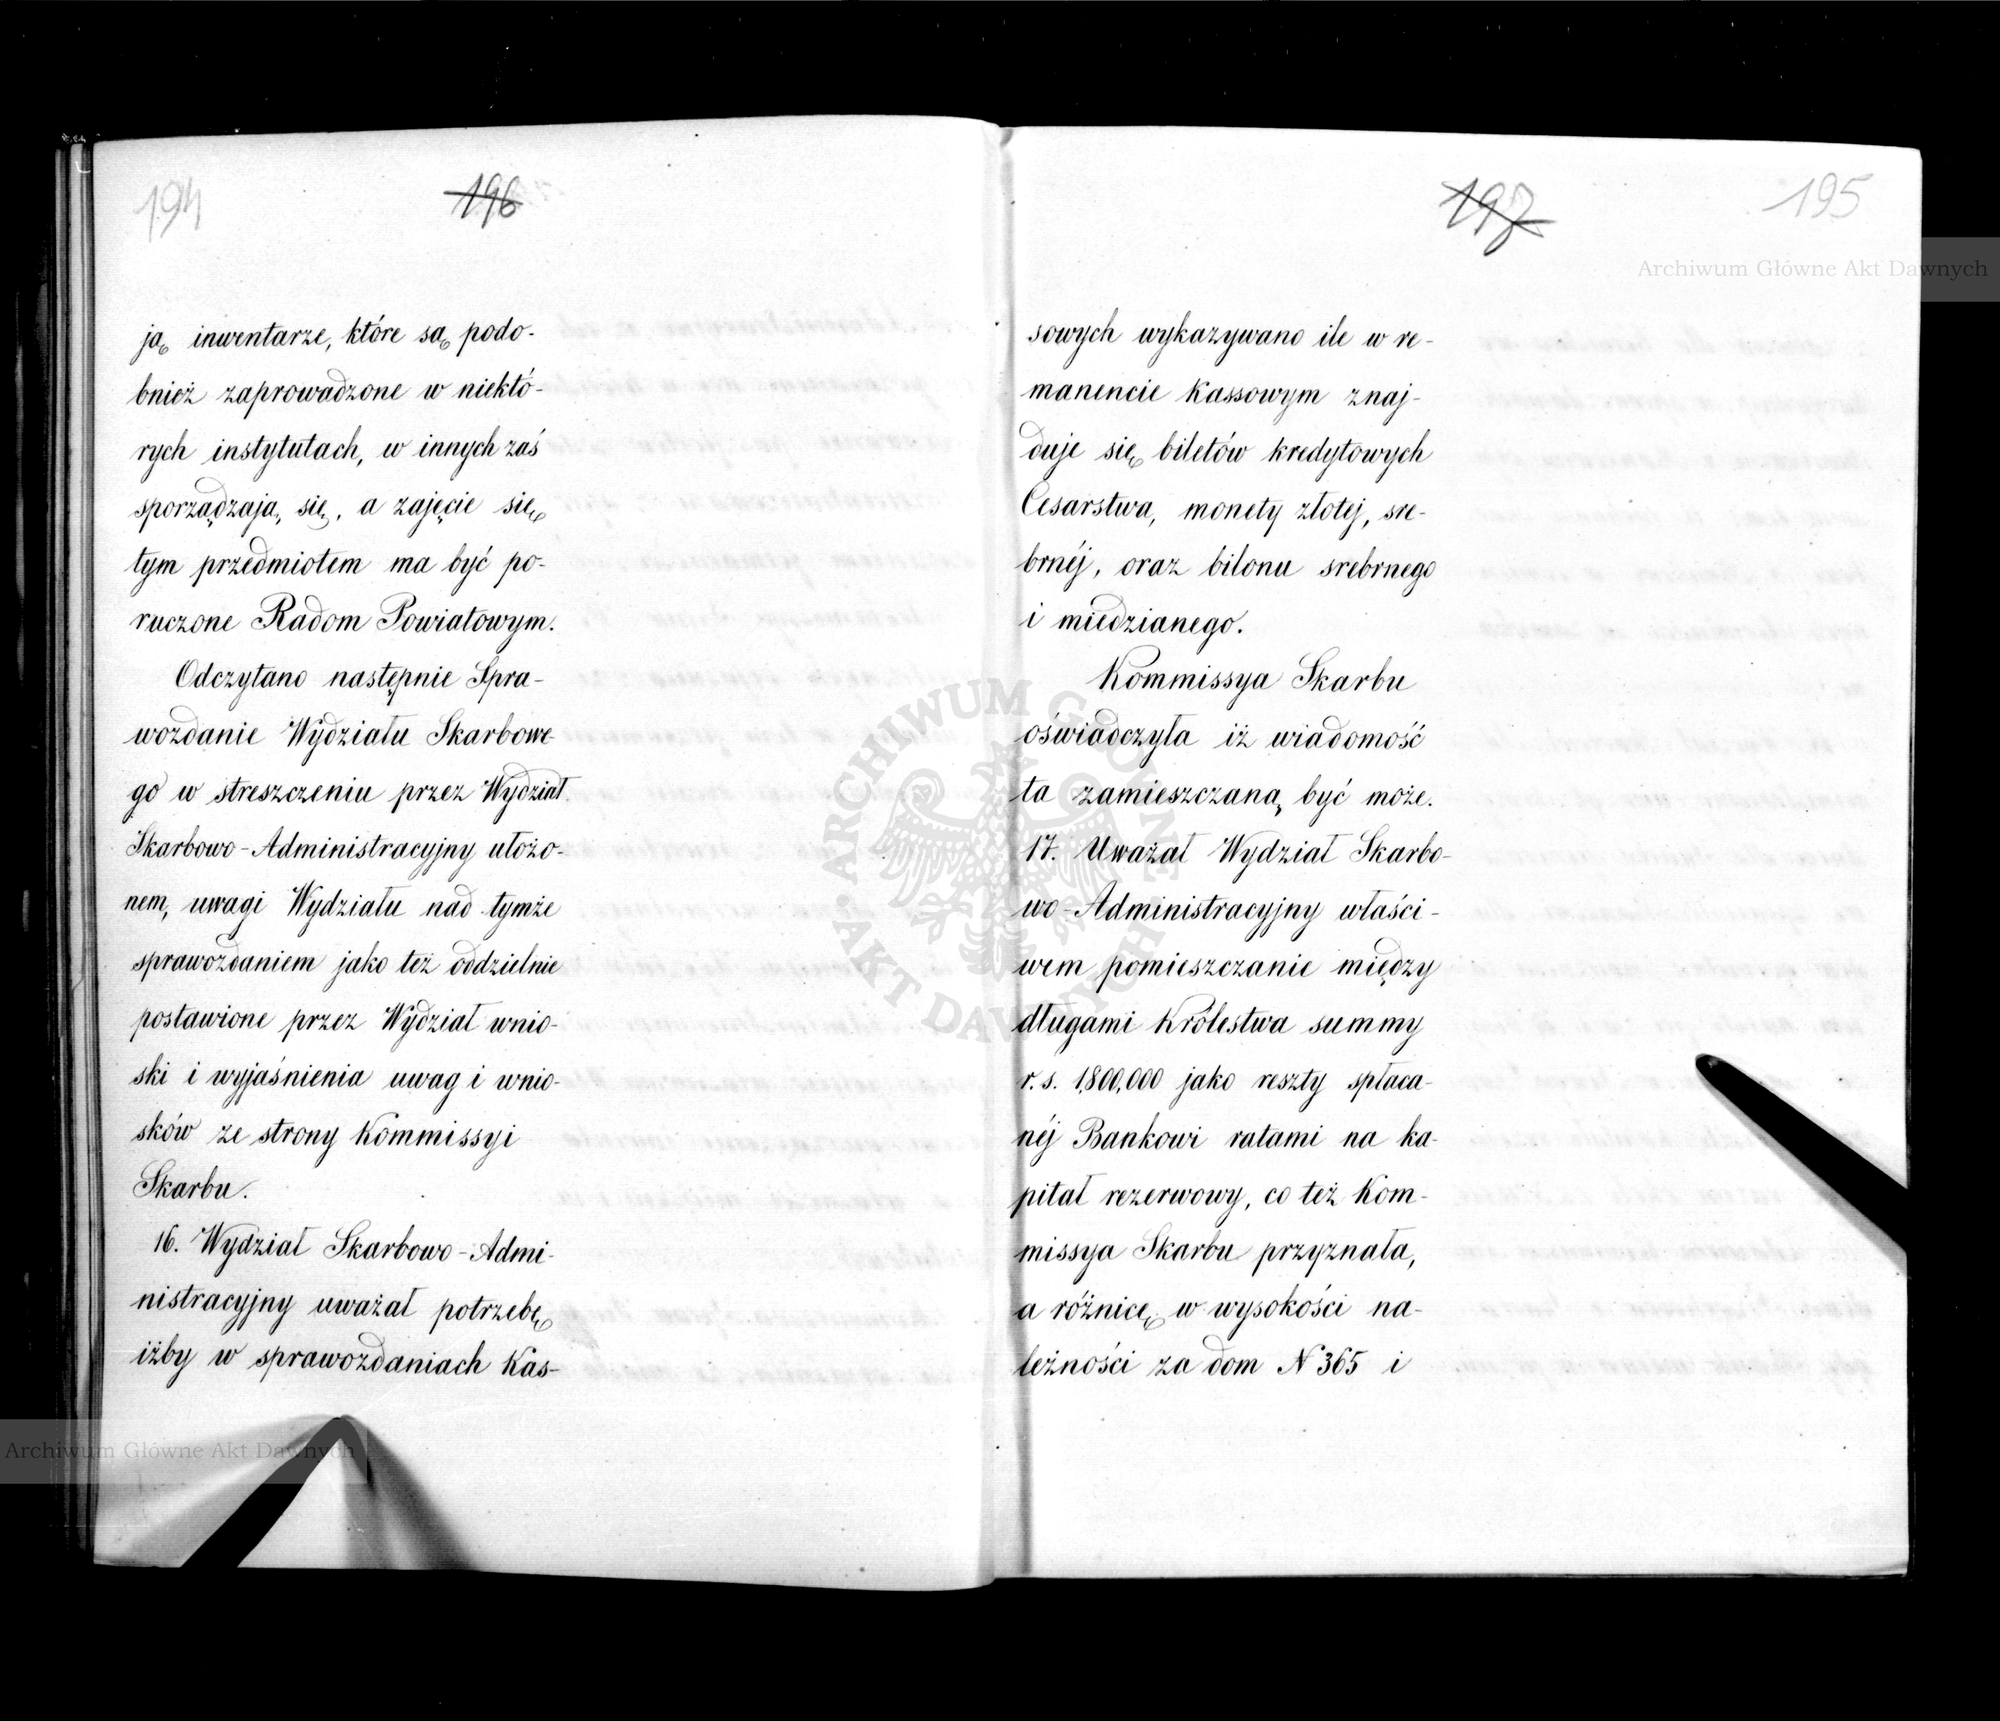 194
196
ją inwentarze, które są podo-
bnież zaprowadzone w niektó-
rych instytutach, w innych zaś
sporządzają się, a zajęcie się
tym przedmiotem ma być po-
ruczone Radom Powiatowym.
Odczytano następnie Spra-
wozdanie Wydziału Skarbowe-
go w streszczeniu przez Wydział
Skarbowo-Administracyjny ułożo-
nem, uwagi Wydziału nad tymże
sprawozdaniem jako też oddzielnie
postawione przez Wydział wnio-
ski i wyjaśnienia uwag i wnio-
sków ze strony Kommissyi
Skarbu.
16. Wydział Skarbowo-Admi-
nistracyjny uważał potrzebę
iżby w sprawozdaniach Kas-
197
195
sowych wykazywano ile w re-
manencie Kassowym znaj-
duje się biletów kredytowych
Cesarstwa, monety złotej, sre-
brnéj, oraz bilonu srebrnego
i miedzianego.
Kommissya Skarbu
oświadczyła iż wiadomość
ta zamieszczaną być może.
17. Uważał Wydział Skarbo-
wo-Administracyjny właści-
wem pomieszczanie między
długami Królestwa summy
r. s. 1,800,000 jako reszty spłaca-
néj Bankowi ratami na ka-
pitał rezerwowy, co też Kom-
missya Skarbu przyznała,
a różnicę w wysokości na-
leżności za dom N 365 i
Archiwum Główne Akt Dawnych
ARCHIWUM GŁÓWNE AKT DAWNYCH
Archiwum Główne Akt Dawnych